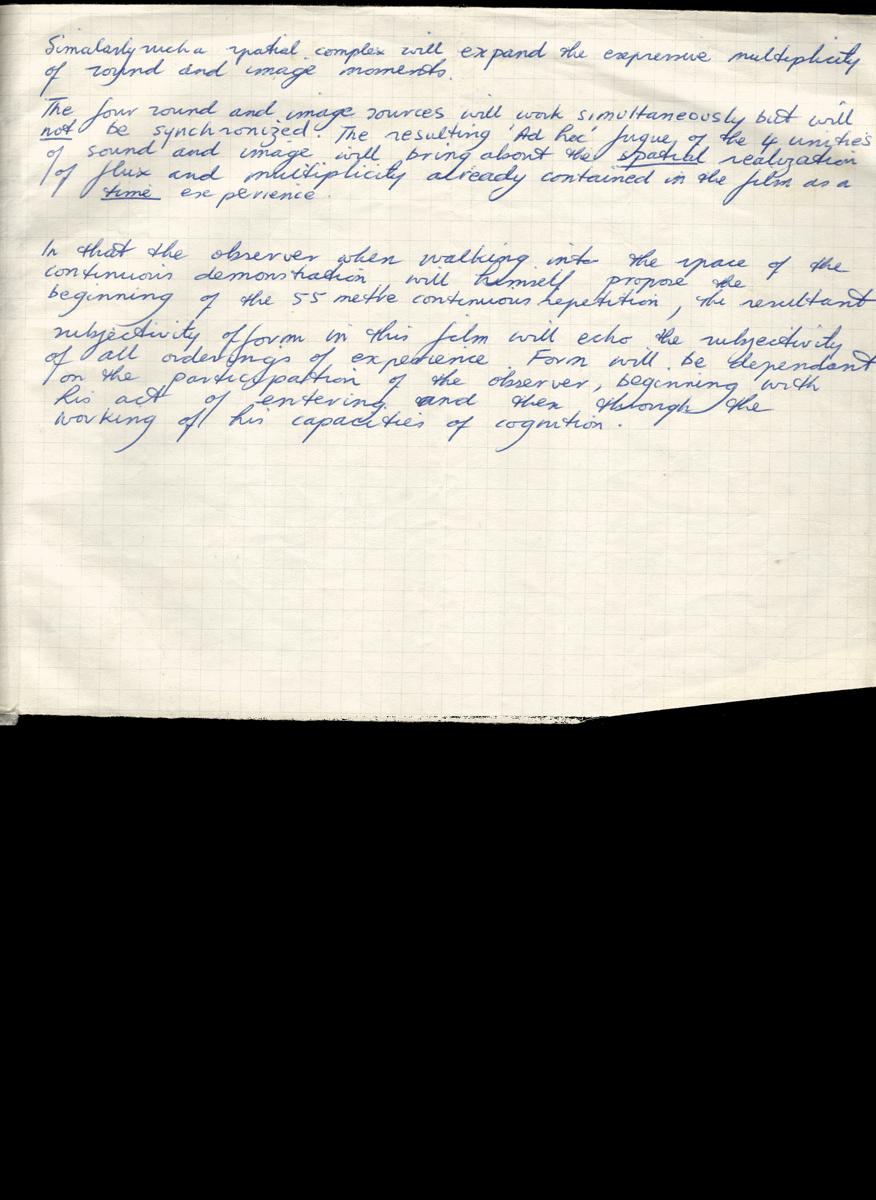 Simalarly such a spatial complex will expand the expressive multiplicity
of sound and image moments.
The four sound and image sources will work simultaneously but will
not be synchronized. The resulting 'Ad hoc' fugue of the 4 unities
of sound and image will bring about the spatial realization
of flux and multiplicity already contained in the film as a
time experience.
In that the observer when walking into the space of the
continuous demonstration will himself propose the
beginning of the 55 metre continuous repetition, the resultant
subjectivity of form in this film will echo the subjectivity
of all orderings of experience. Form will be dependant
on the participation of the observer, beginning with
his act of entering and then through the
working of his capacities of cognition.